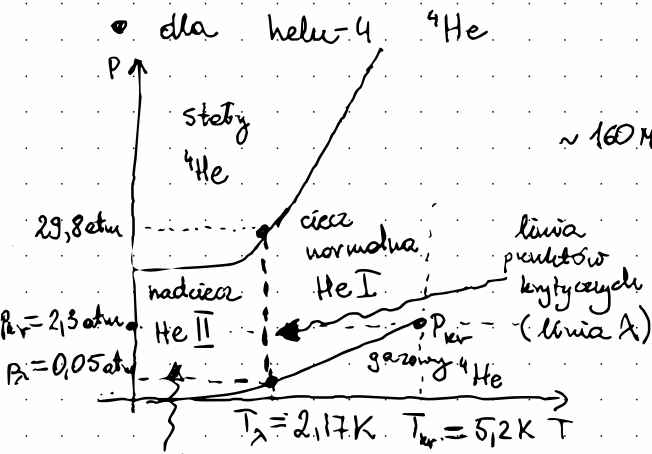 • dla helu-4 ⁴He
P
stały
⁴He
~ 160 M
29,8 atm
ciecz
normalna
He I
linia
punktów
krytycznych
(linia λ)
nadciecz
He II
Pkr = 2,3 atm
Pkr
Pλ = 0,05 atm
gazowy ⁴He
Tλ = 2,17 K Tkr = 5,2 K T